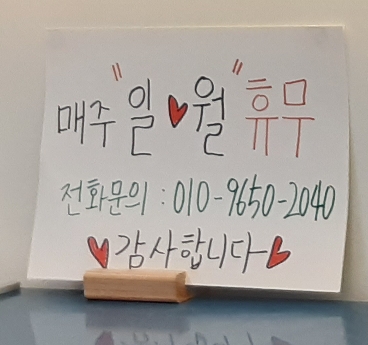 매주 "일♥월" 휴무
전화문의 : 010-9650-2040
♥감사합니다♥